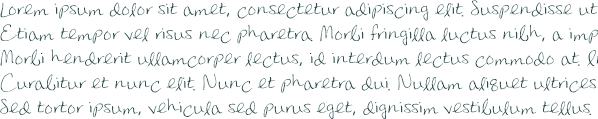 Lorem ipsum dolor sit amet, consectetur adipiscing elit. Suspendisse ut
Etiam tempor vel risus nec pharetra Morbi fringilla luctus nibh, a imp
Morbi hendrerit ullamcorper lectus, id interdum lectus commodo at. li
Curabitur et nunc elit. Nunc et pharetra dui. Nullam aliquet ultrices
Sed tortor ipsum, vehicula sed purus eget, dignissim vestibulum tellus.